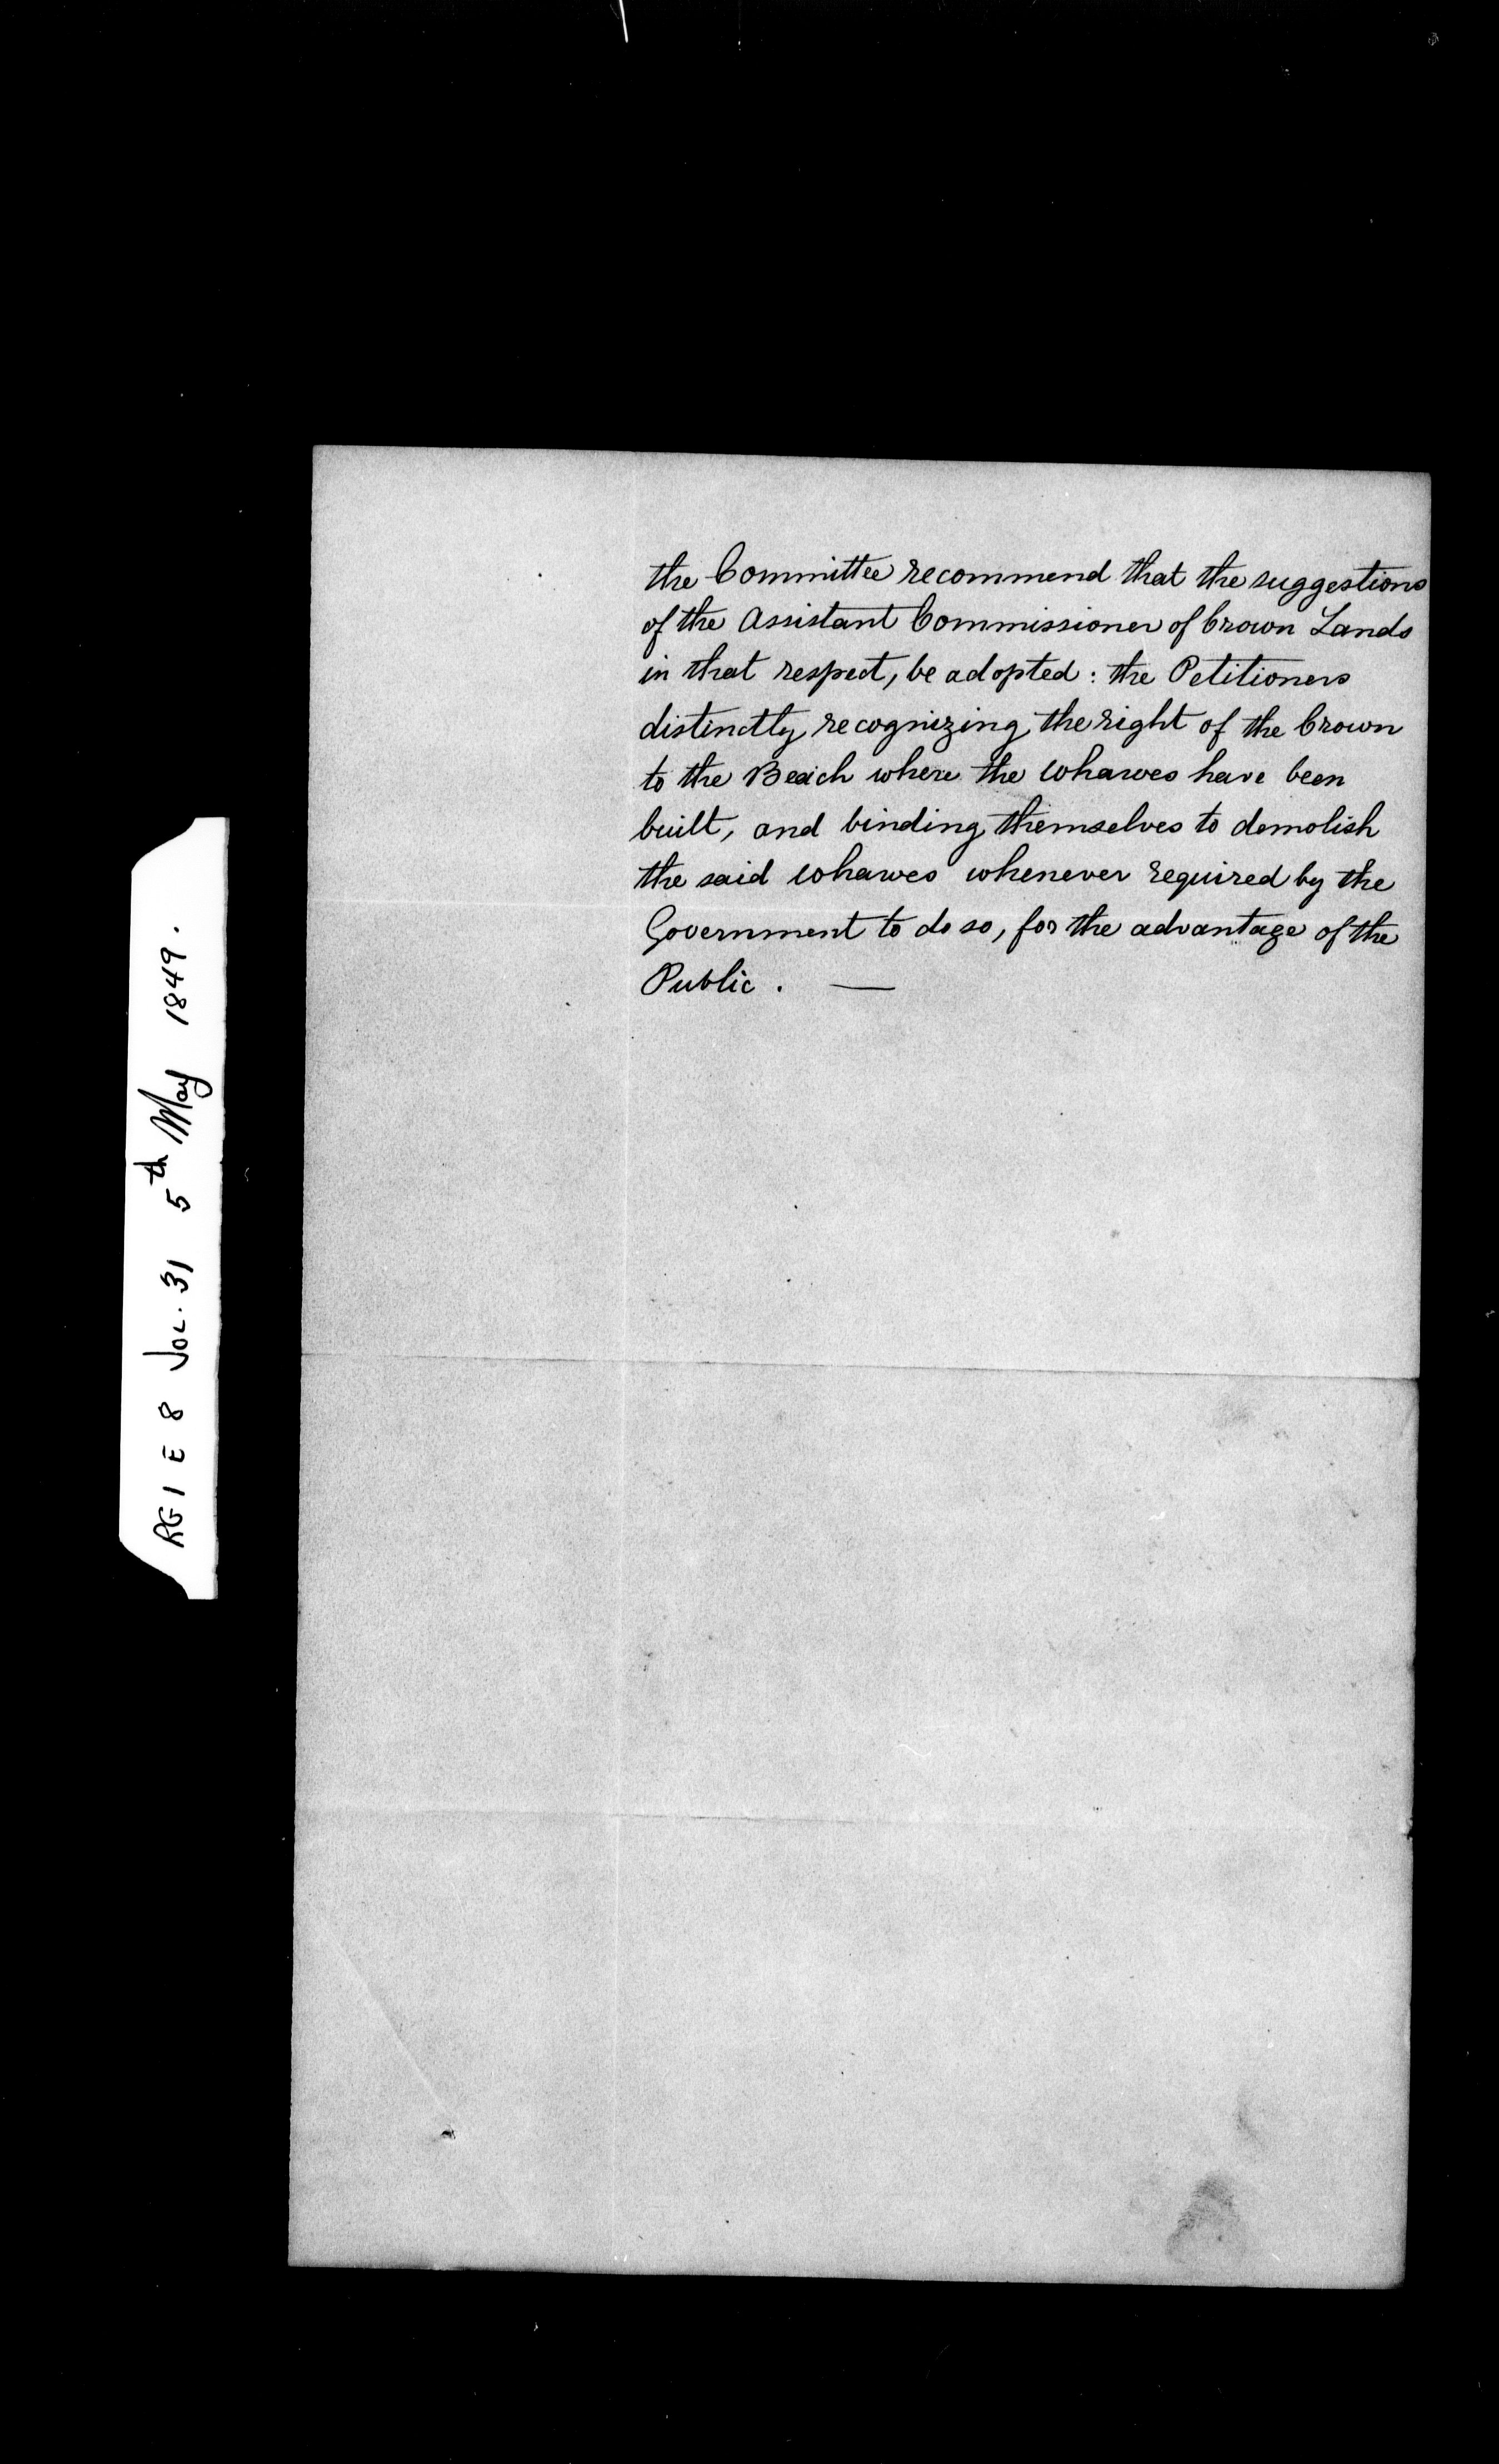 the Committee recommend that the suggestions
of the Assistant Commissioner of Crown Lands
in that respect, be adopted : the Petitioners
distinctly recognizing the right of the Crown
to the Beach where the wharves have been
built, and binding themselves to demolish
the said wharves whenever required by the
Government to do so, for the advantage of the
Public . —
RG 1 E 8 Vol. 31 5th May 1849.